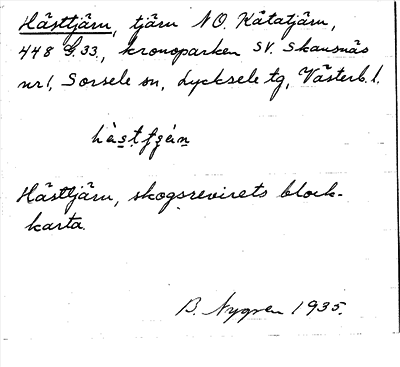 Hästtjärn, tjärn NO. Kåtatjärn,
448 G. 33., kronoparken SV. Skansnäs
nr 1, Sorsele sn, Lycksele tg, Västerb. l.
Hästtjärn, skogsrevirets block-
karta.
B. Nygren 1935.